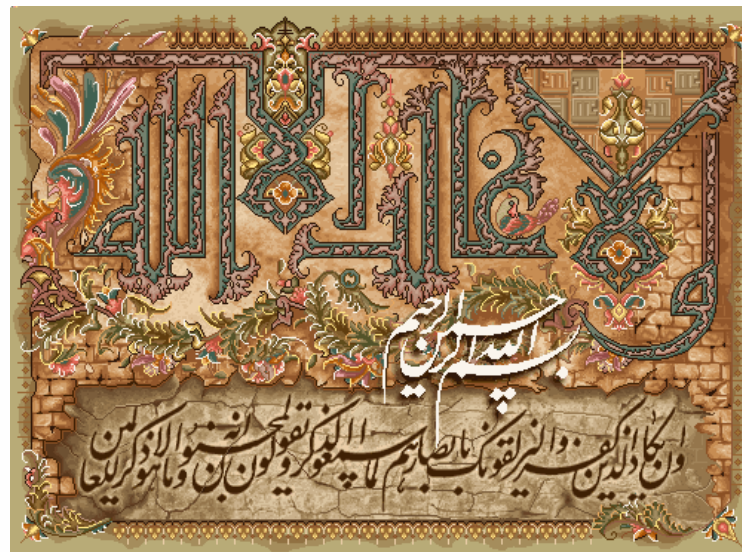 ولا غالب الا الله
بسم الله الرحمن الرحیم
وان یکاد الذین کفروا لیزلقونک بابصارهم لما سمعوا الذکر و یقولون انه لمجنون و ما هو الا ذکر للعالمین